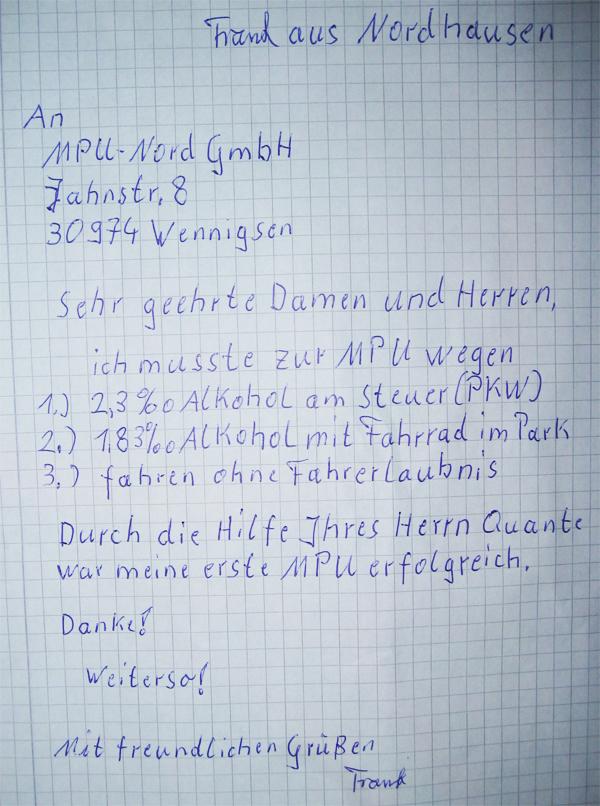 Frank aus Nordhausen
An
MPU-Nord GmbH
Jahnstr. 8
30974 Wennigsen
Sehr geehrte Damen und Herren,
ich musste zur MPU wegen
1.) 2,3 ‰ Alkohol am Steuer (PKW)
2.) 1,83‰ Alkohol mit Fahrrad im Park
3.) fahren ohne Fahrerlaubnis
Durch die Hilfe Ihres Herrn Quante
war meine erste MPU erfolgreich.
Danke!
Weiterso!
Mit freundlichen Grüßen
Frank